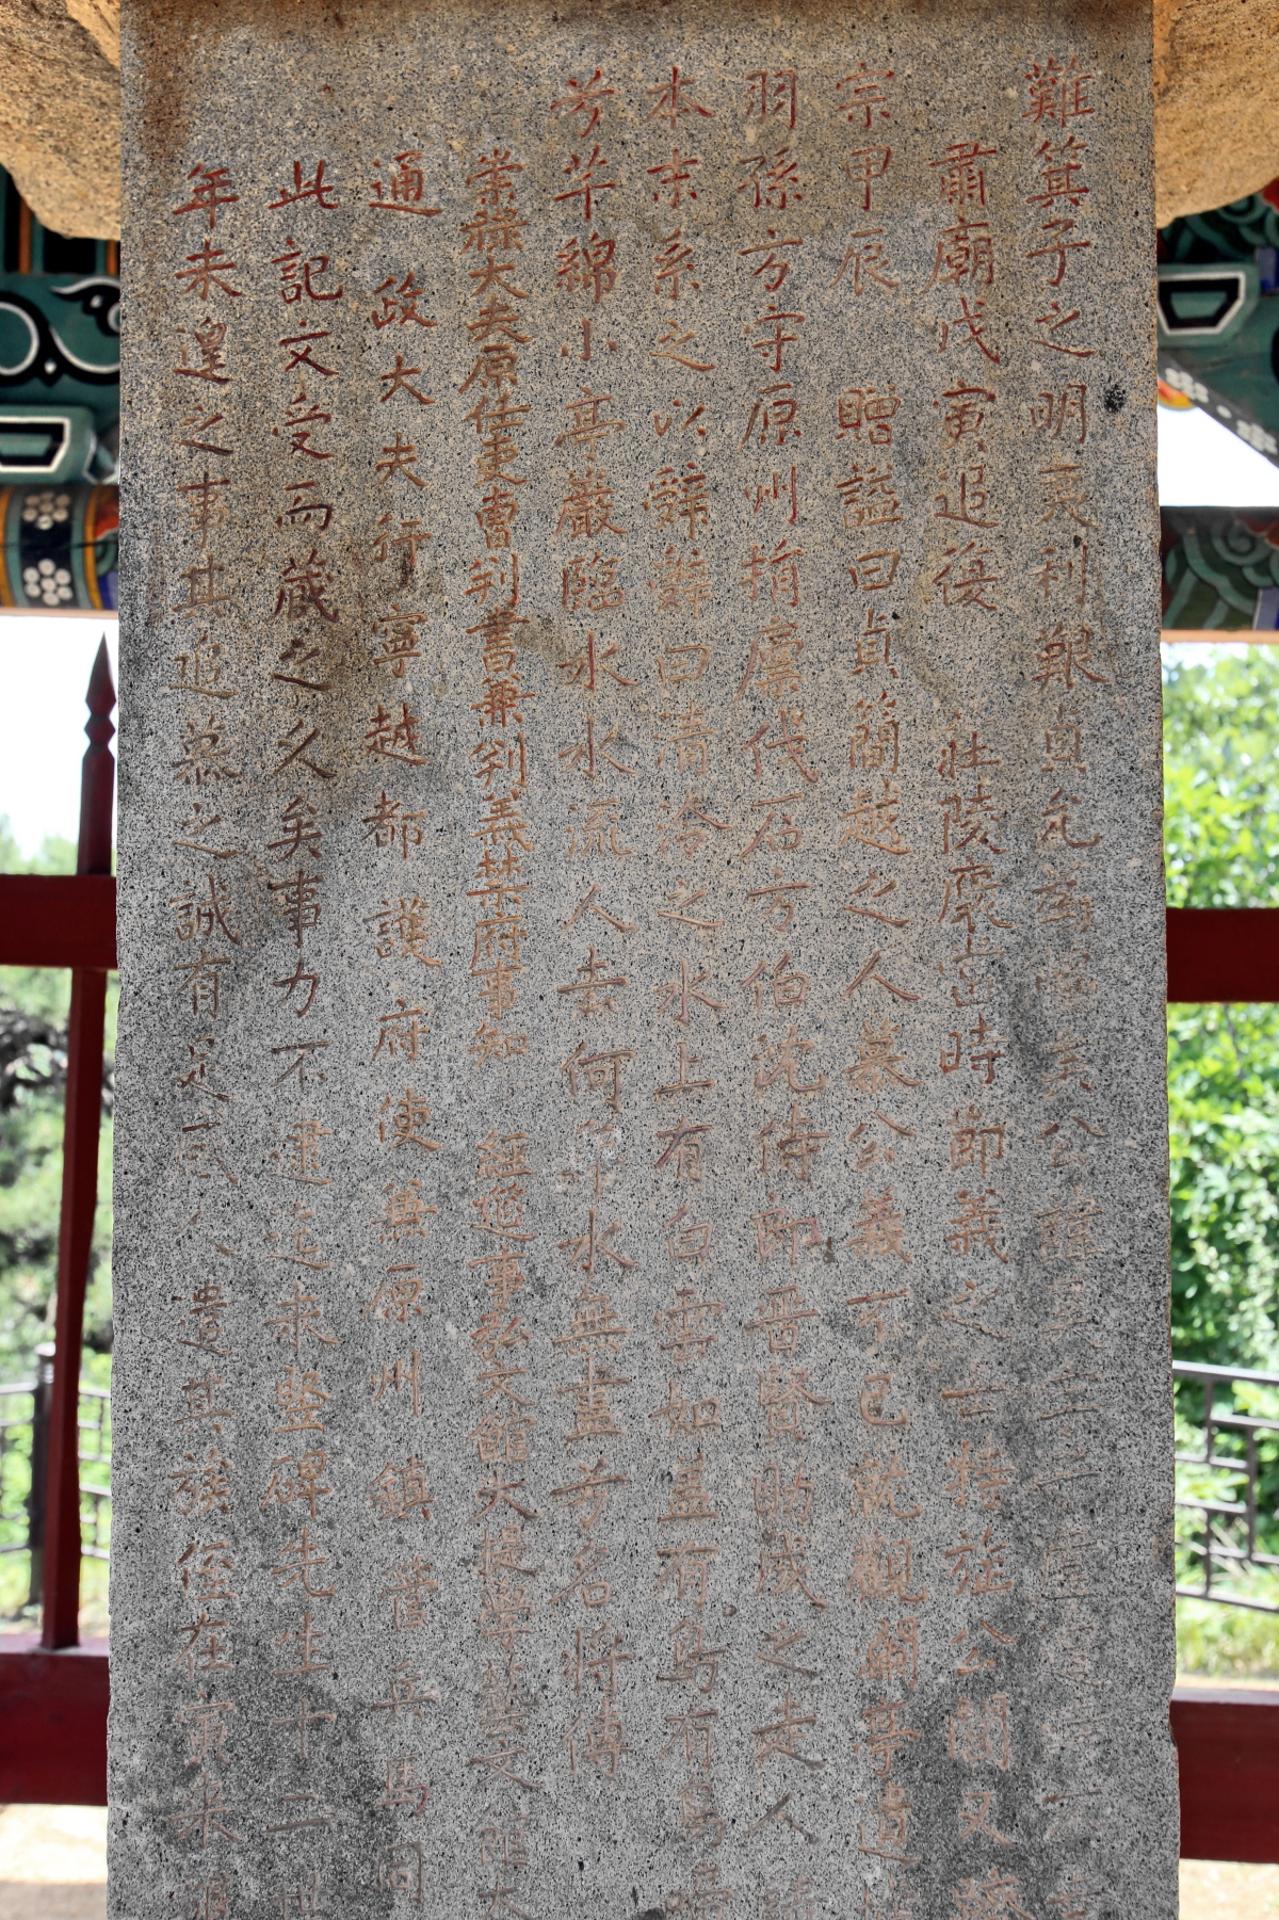 難箕子之明夷利艱貞允茲當矣公諱昊
肅廟戊寅追復 莊陵褒當時節義之士持旌公閭又
宗甲辰 贈謚曰貞簡越之人慕公義可已就觀瀾亭遺
羽孫方守原州捐廩伐石方伯沈侍郎晋賢助成之走人
本末系之以辭辭曰清泠之水上有白雲如盖有鳥有鳥
兮芉綿小亭巖臨水水流人去何年水無盡兮名將傳
崇祿大夫原任吏曹判書兼判義禁府事知 經筵事弘文館大提學藝文館大
通政大夫行寧越都護府使兼原州鎮管兵馬同
此記文受而藏之久矣事力不逮迄未竪碑先生十二世
年未遑之事其追慕之誠有足感人遣其族侄在寅来